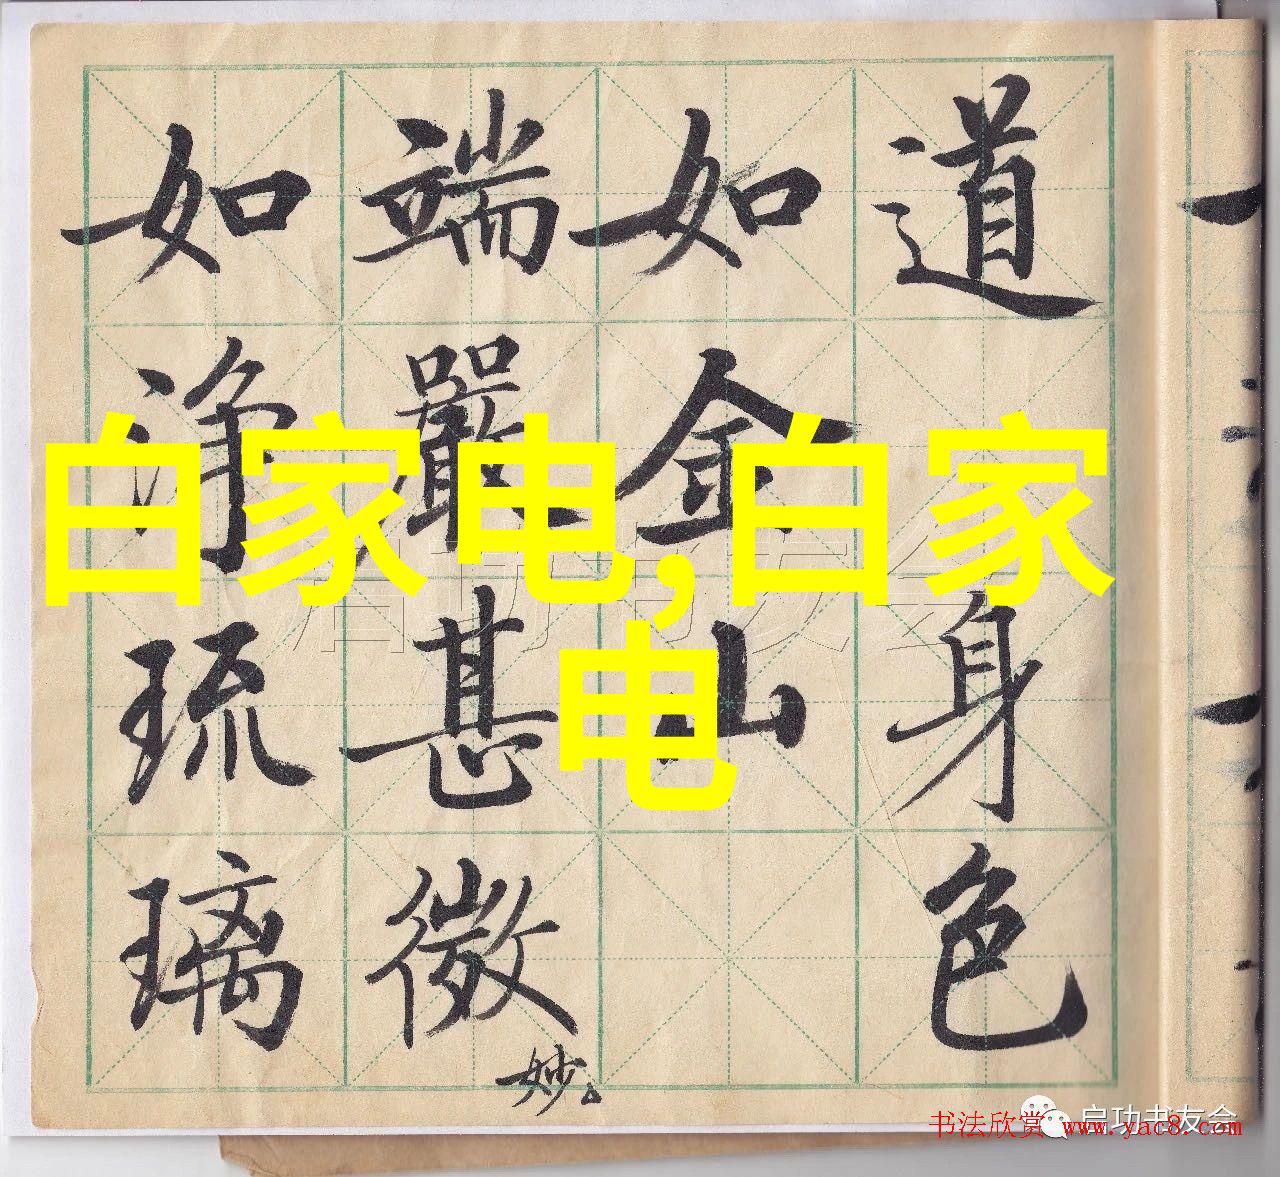 道 身色
如金山
端嚴甚微妙
如淨琉璃
白家电,白家
电
启功书友会
书法欣赏 www.yac8.com
启功书友会